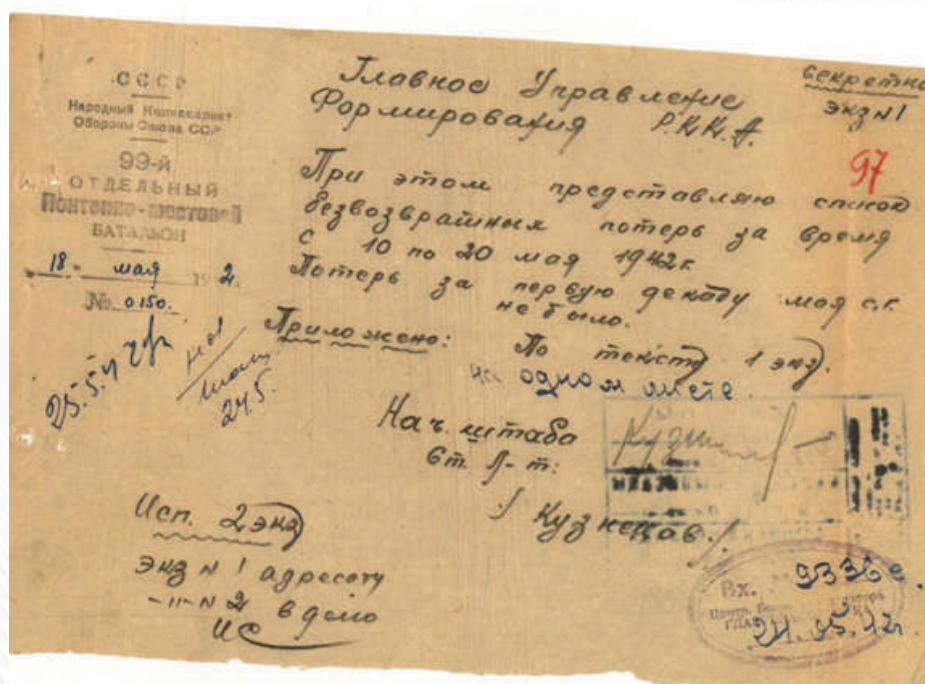 СССР
Народный Комиссариат
Обороны Союза ССР
99-й
ОТДЕЛЬНЫЙ
Понтонно-мостовой
БАТАЛЬОН
18 - мая 1942.
№ 0150.
25.5.42г
24.5.
секретно
экз №1
97
Главное Управление
Формирования Р.К.К.А.
При этом представляю список
безвозвратных потерь за время
с 10 по 20 мая 1942г.
Потерь за первую декаду мая с.г.
не было.
Приложено: По тексту 1 экз.
на одном листе.
Нач. штаба
Ст. Л-т:
/Кузнецов./
Исп. 2 экз
экз № 1 адресату
-"- № 2 в дело
ИС
Вх. 9336с
24.05.42г.